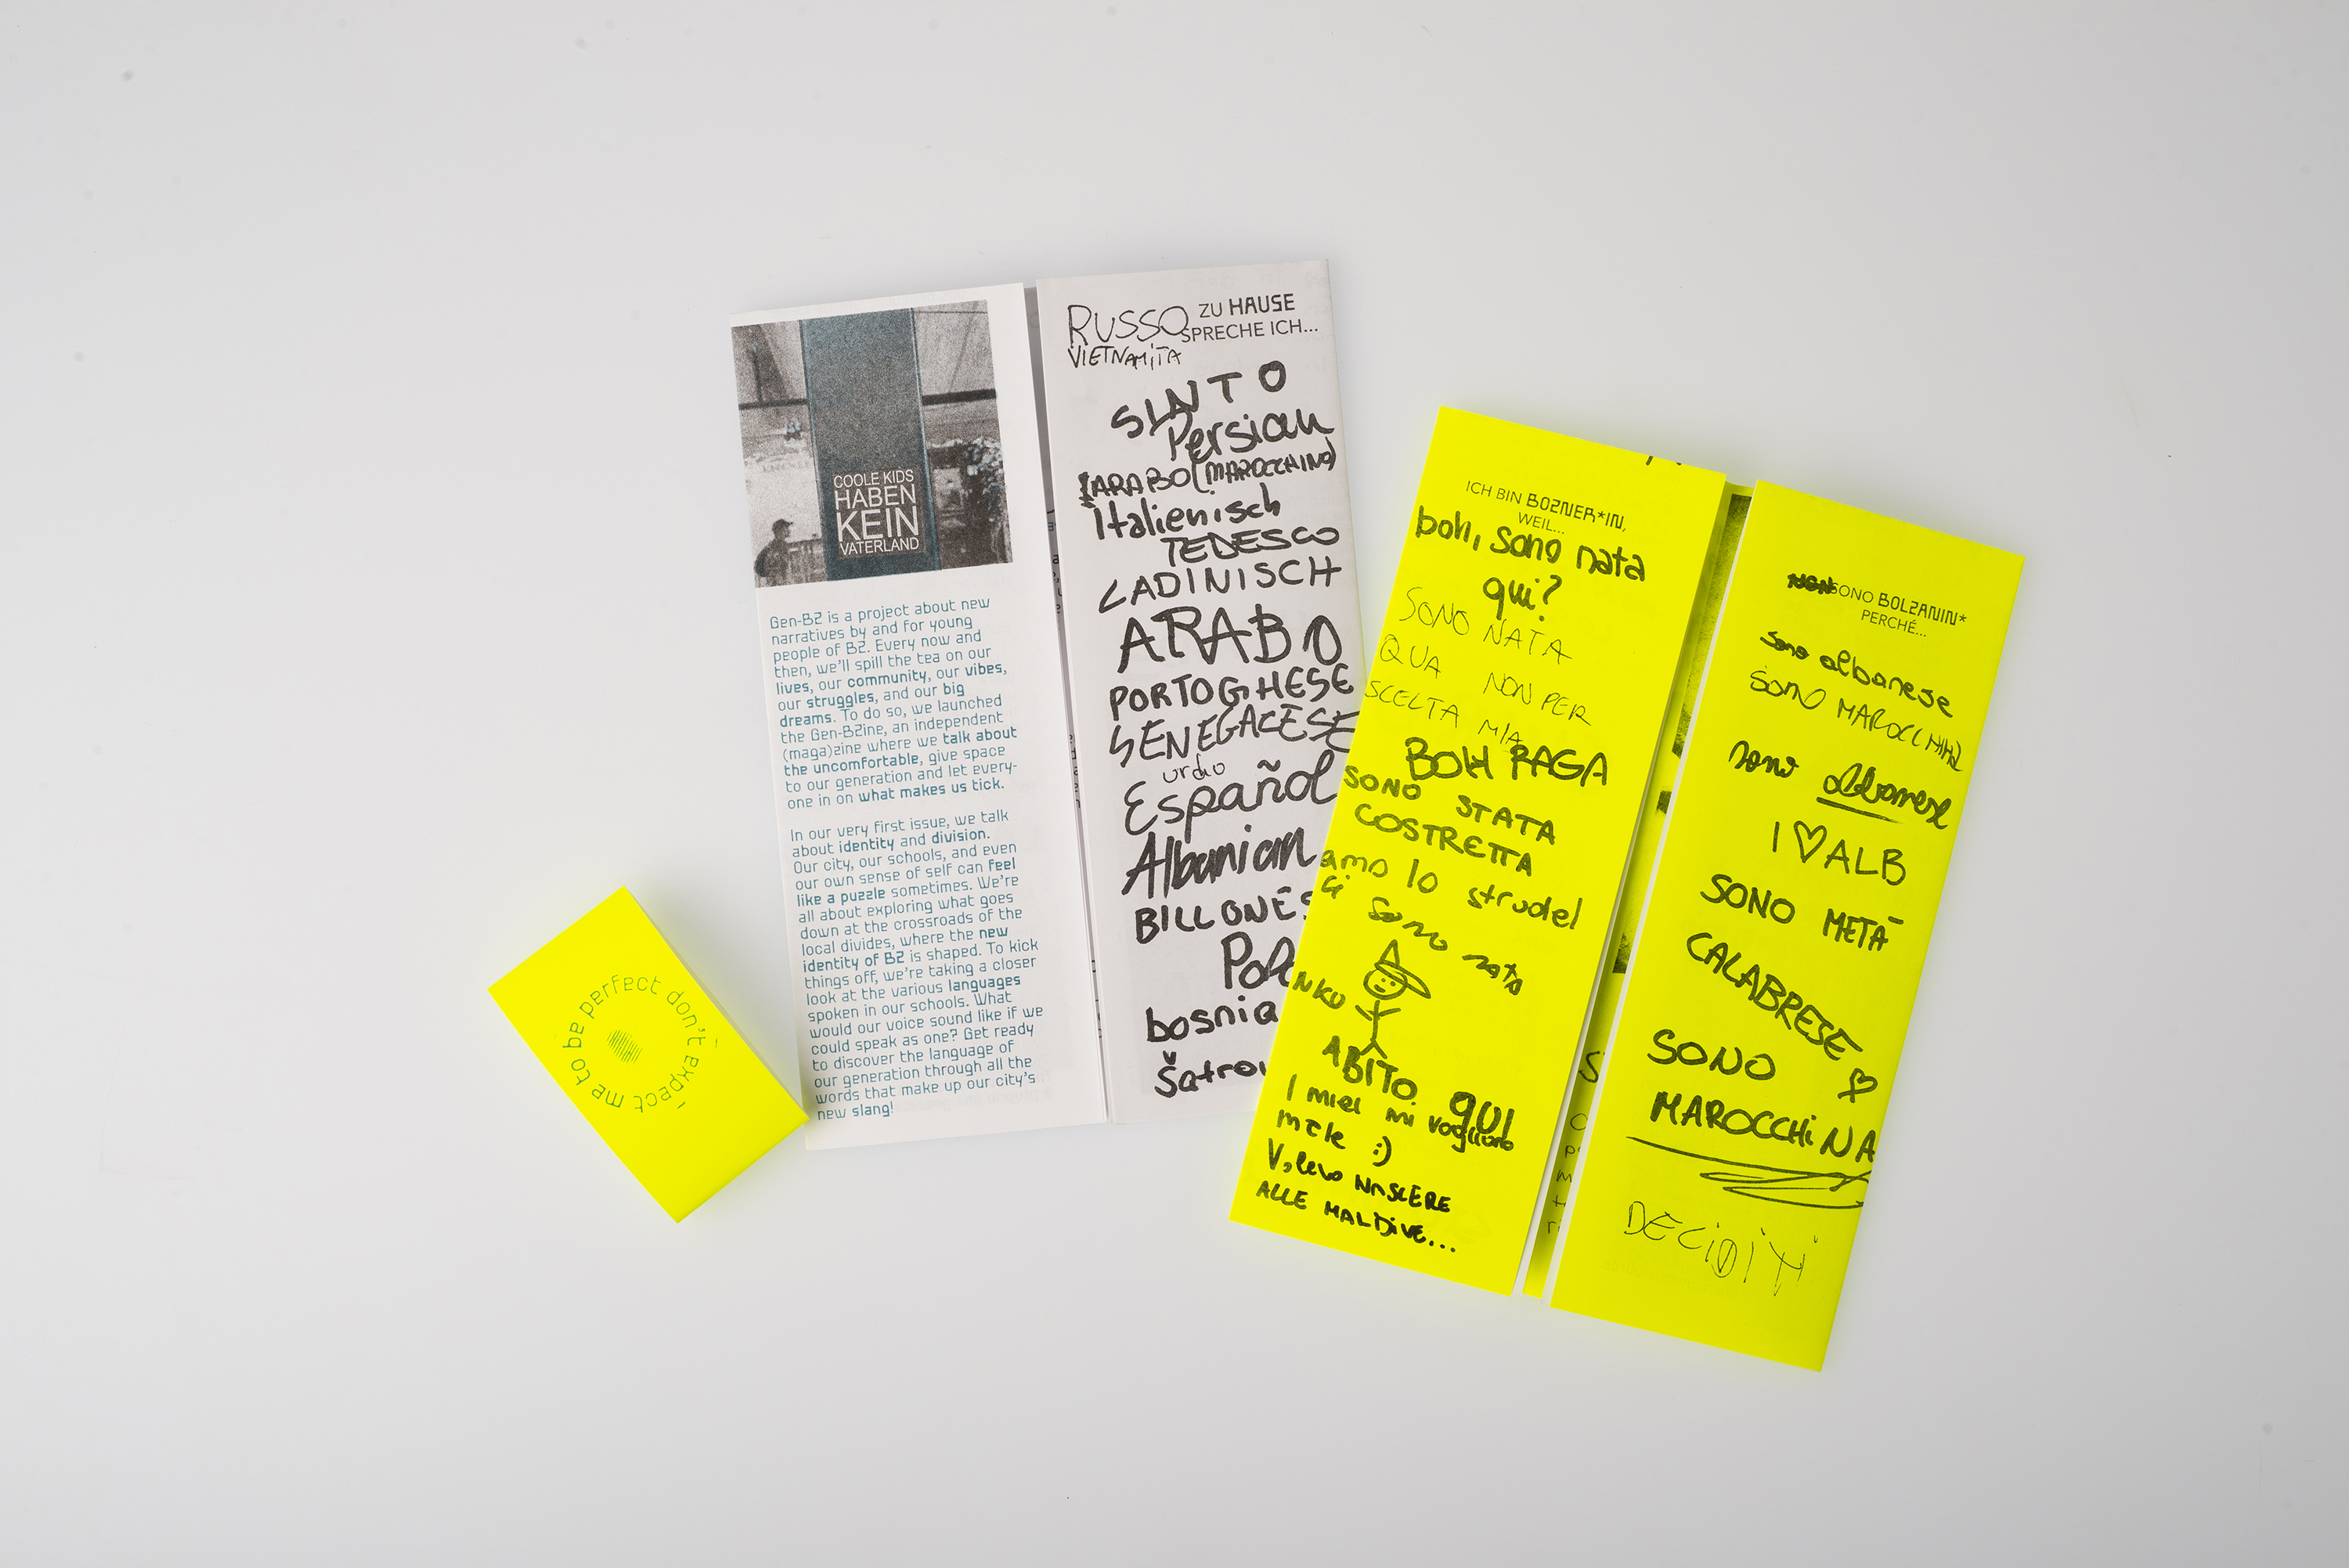 don't expect me to be perfect
COOLE KIDS
HABEN
KEIN
VATERLAND
Gen-BZ is a project about new
narratives by and for young
people of BZ. Every now and
then, we'll spill the tea on our
lives, our community, our vibes,
our struggles, and our big
dreams. To do so, we launched
the Gen-BZine, an independent
(maga)zine where we talk about
the uncomfortable, give space
to our generation and let every-
one in on what makes us tick.
In our very first issue, we talk
about identity and division.
Our city, our schools, and even
our own sense of self can feel
like a puzzle sometimes. We're
all about exploring what goes
down at the crossroads of the
local divides, where the new
identity of BZ is shaped. To kick
things off, we're taking a closer
look at the various languages
spoken in our schools. What
would our voice sound like if we
could speak as one? Get ready
to discover the language of
our generation through all the
words that make up our city's
new slang!
ZU HAUSE
SPRECHE ICH...
RUSSO
VIETNAMITA
SINTO
Persian
ARABO (MAROCCHINO)
Italienisch
TEDESCO
LADINISCH
ARABO
PORTOGHESE
SENEGALESE
urdu
Español
Albanian
BILLONÉS
Pol
bosnia
Šatrov
ICH BIN BOZNER*IN,
WEIL...
boh, sono nata
qui?
SONO NATA
QUA NON PER
SCELTA MIA
BOH RAGA
SONO STATA
COSTRETTA
amo lo strudel
Ci sono nata
NKU
ABITO QUI
I miei mi vogliono
male :)
Volevo NASCERE
ALLE MALDIVE...
NON SONO BOLZANIN*
PERCHÉ...
sono albanese
SONO MAROCCHINA
sono albanese
I ♡ ALB
SONO METÀ
CALABRESE ♡
SONO
MAROCCHINA
DECIDITI